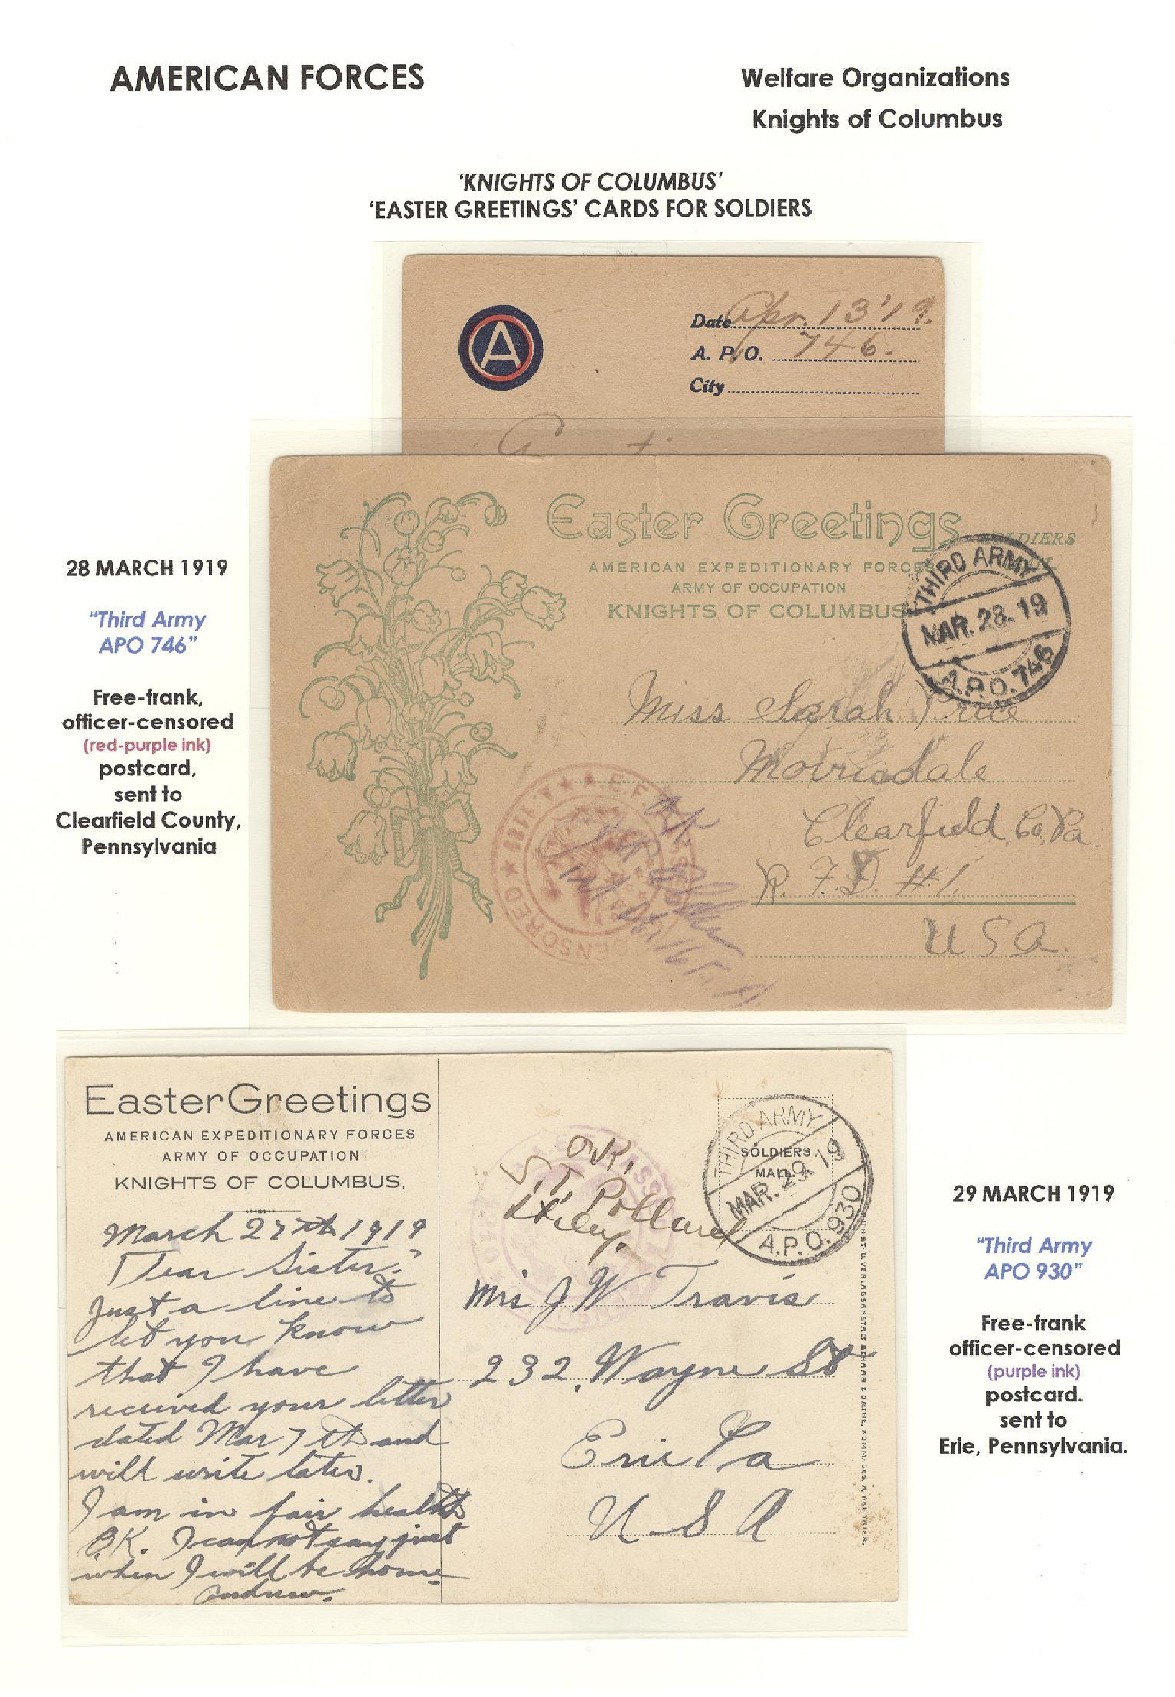 AMERICAN FORCES
Welfare Organizations
Knights of Columbus
'KNIGHTS OF COLUMBUS'
'EASTER GREETINGS' CARDS FOR SOLDIERS
A
Date Apr. 13'19.
A. P. O. 746.
City
28 MARCH 1919
"Third Army
APO 746"
Free-frank,
officer-censored
(red-purple ink)
postcard,
sent to
Clearfield County,
Pennsylvania
Easter Greetings
SOLDIERS
AMERICAN EXPEDITIONARY FORCES
ARMY OF OCCUPATION
KNIGHTS OF COLUMBUS
THIRD ARMY
MAR. 28. 19
A.P.O. 746
Miss Sarah Price
Morrisdale
Clearfield Co. Pa.
R. F. D. #1.
U S a.
A.E.F.
CENSORED
OK
Easter Greetings
AMERICAN EXPEDITIONARY FORCES
ARMY OF OCCUPATION
KNIGHTS OF COLUMBUS.
March 27th 1919
Dear Sister:
Just a line to
let you know
that I have
received your letter
dated Mar 7th and
will write later.
I am in fair health
O.K. I can not say just
when I will be home
Andrew.
O.K.
Pollard
THIRD ARMY
SOLDIERS
MAIL
MAR. 29. 19
A.P.O. 930
Mrs J W Travis
232 Wayne St
Erie Pa
U S A
29 MARCH 1919
"Third Army
APO 930"
Free-frank
officer-censored
(purple ink)
postcard.
sent to
Erie, Pennsylvania.